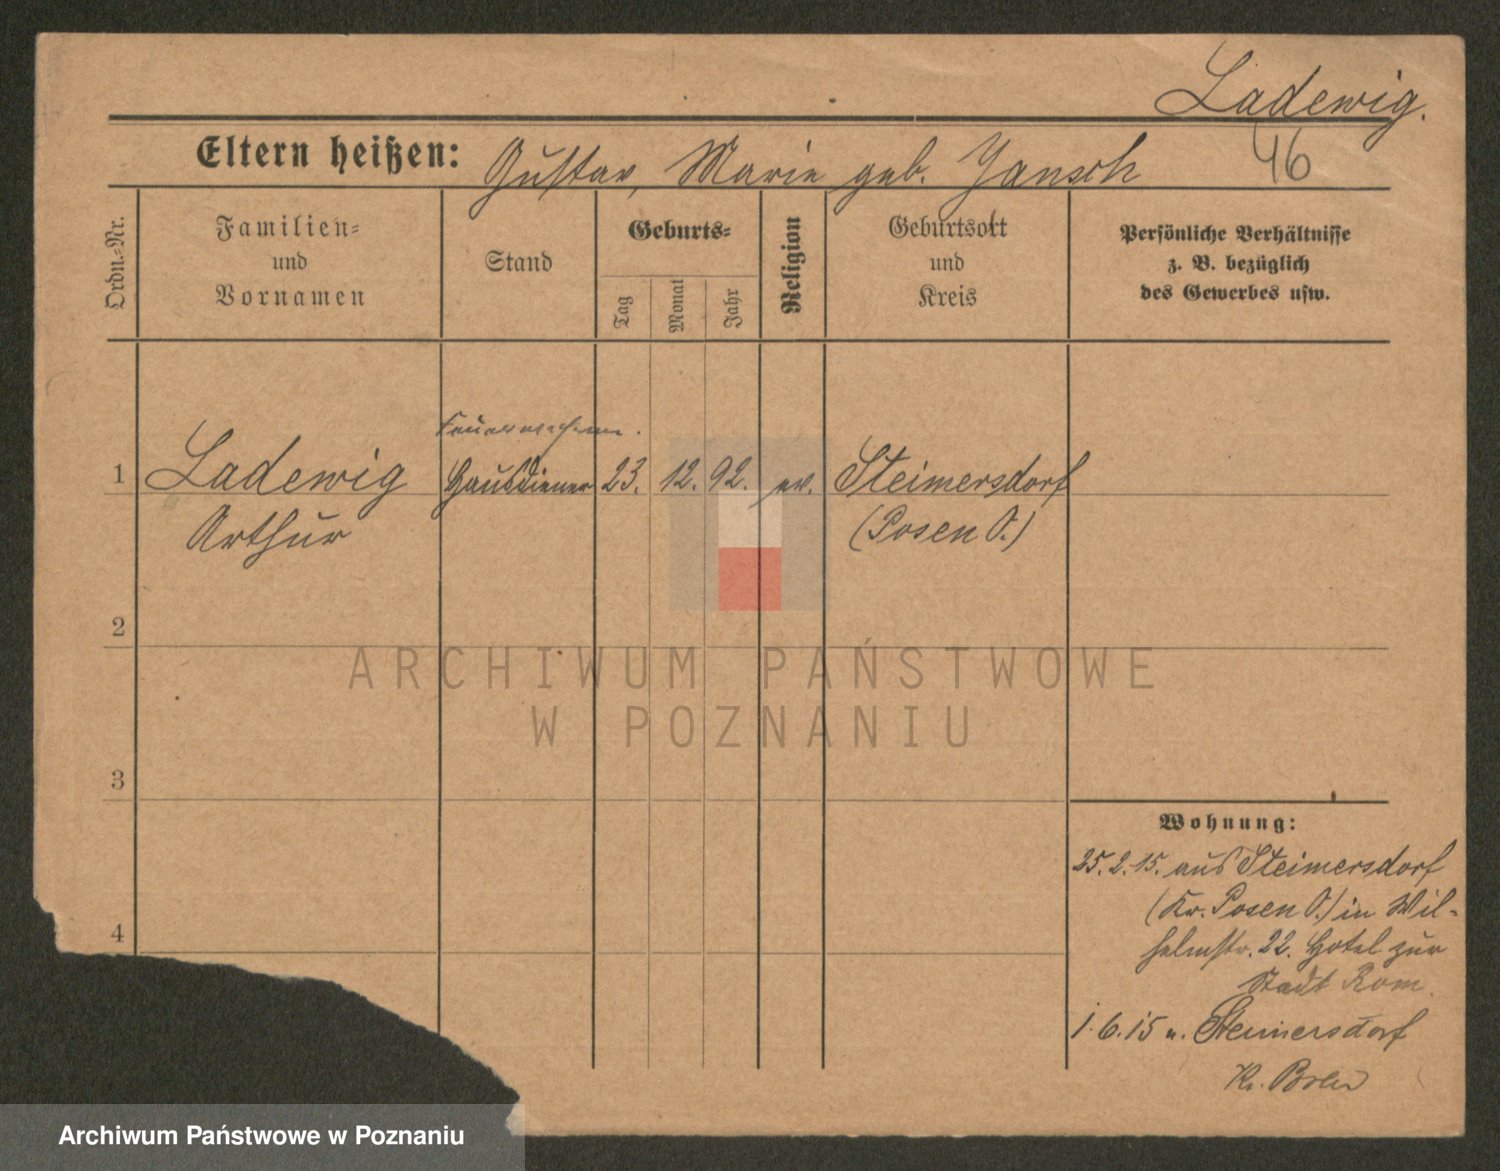 Ladewig.
46
Eltern heißen: Gustav, Marie geb. Jansch
Ordn.-Nr.
Familien-
und
Vornamen
Stand
Geburts-
Tag
Monat
Jahr
Religion
Geburtsort
und
Kreis
Persönliche Verhältnisse
z. B. bezüglich
des Gewerbes usw.
1 Ladewig Hausdiener 23. 12. 92. ev. Steimersdorf
Arthur (Posen O.)
2
ARCHIWUM PAŃSTWOWE
W POZNANIU
3
Wohnung:
25.2.15. aus Steimersdorf
(Kr. Posen O.) in Wil-
helmstr. 22. Hotel zur
Stadt Rom.
4
1.6.15 n. Steimersdorf
Kr.
Archiwum Państwowe w Poznaniu